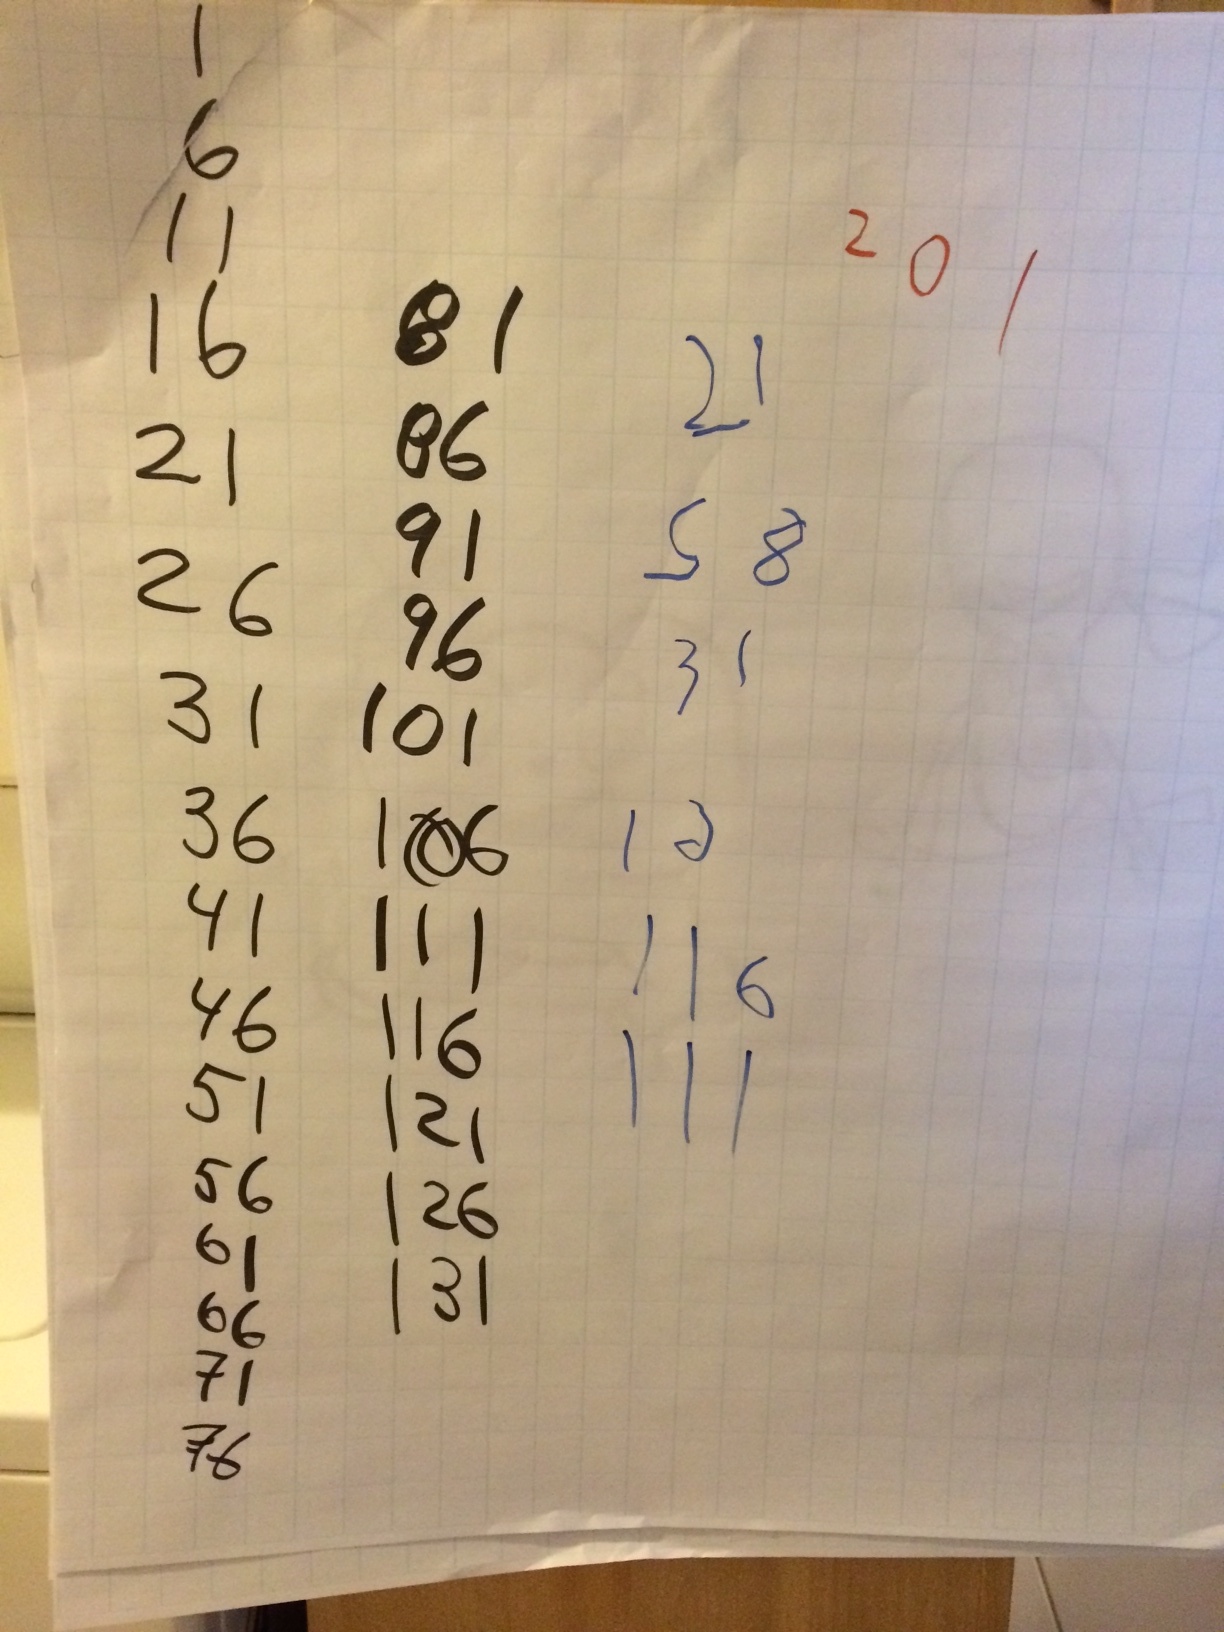 1
6
11
16
21
26
31
36
41
46
51
56
61
66
71
76
81
86
91
96
101
106
111
116
121
126
131
21
58
31
116
111
201